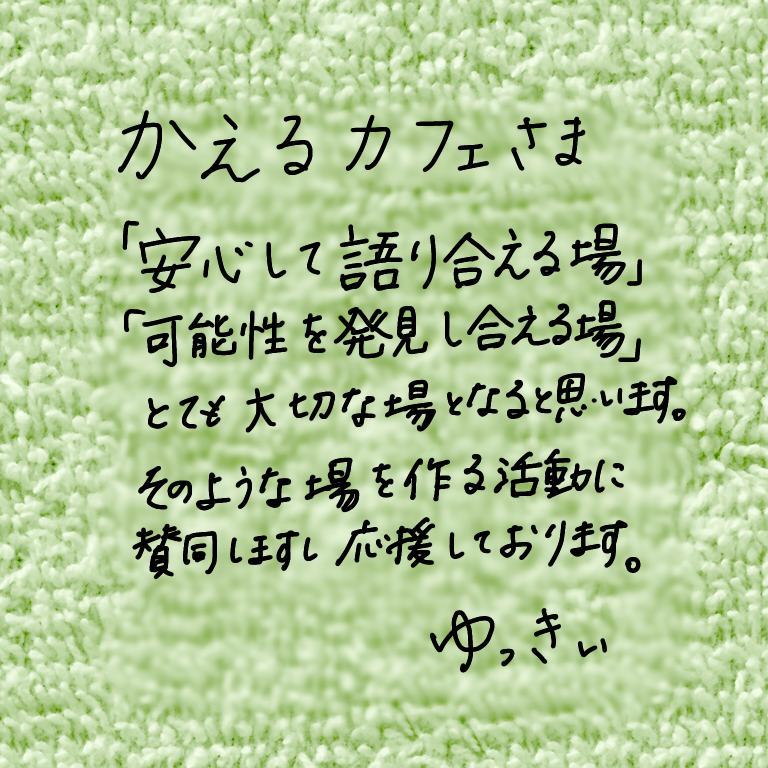 かえるカフェさま
「安心して語り合える場」
「可能性を発見し合える場」
とても大切な場となると思います。
そのような場を作る活動に
賛同しますし応援しております。
ゆっきぃ